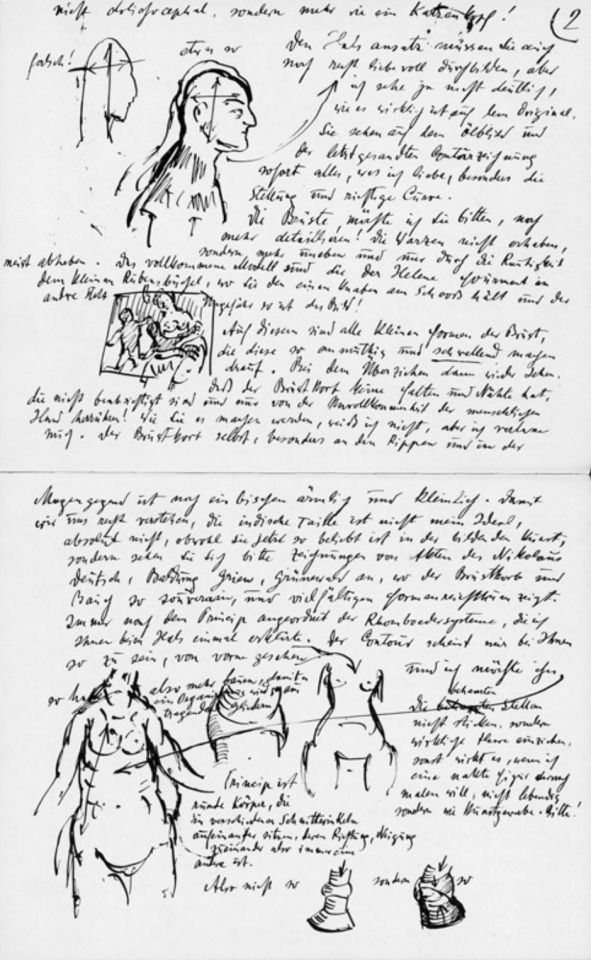 nicht dolichocephal, sondern mehr wie ein Katzenkopf!
2
falsch!
etwas so
Den Halsansatz müssen Sie auch
noch recht liebevoll durchbilden, aber
ich sehe ja nicht deutlich,
wie es wirklich ist auf dem Original.
Sie sehen auf dem Ölbild und
der letztgesandten Contourzeichnung
sofort alles, was ich liebe, besonders die
Stellung und richtige Curve.
Die Brüste, möchte ich Sie bitten, noch
mehr detaillieren! Die Warzen nicht erhaben,
sondern mehr uneben und nur durch die Runtigkeit
meist abheben. Das vollkommene Modell sind die der Helene Fourment in
dem kleinen Rubensbüchel, wo sie den einen Knaben am Schooß hält und der
andre steht
Ungefähr so ist das Bild!
Auf diesem sind alle kleinen Formen der Brust,
die diese so anmuthig und schwellend machen
drauf. Bei dem Überziehen dann wieder sehen.
daß der Brustkorb keine Falten und Nähte hat,
die nicht beabsichtigt sind und nur von der Unvollkommenheit der menschlichen
Hand herrühren! Wie Sie es machen werden, weiß ich nicht, aber ich vertraue
mich. Der Brustkorb selbst, besonders an den Rippen und in der
Magengegend ist noch ein bischen ärmlich und kleinlich. Damit
wir uns recht verstehen, die indische Taille ist nicht mein Ideal,
absolut nicht, obwohl sie jetzt so beliebt ist in der bildenden Kunst,
sondern sehen Sie sich bitte Zeichnungen von Akten des Nikolaus
Deutsch, Baldung Grien, Grünewald an, wo der Brustkorb und
Bauch so souverain, und vielfältigen Formenreichthum zeigt.
Immer nach dem Princip angeordnet der Rhomboedersysteme, die ich
Ihnen beim Hals einmal erklärte. Der Contour scheint mir bei Ihnen
so zu sein, von vorne gesehen
und ich möchte
also mehr
so
ein Organismus
tragenden Gliedern
Die behaarten Stellen
nicht sticken, sondern
wirkliche Haare einziehen,
sonst wirkt es, wenn ich
eine nackte Figur darnach
malen will, nicht lebendig
sondern wie Kunstgewebe. Bitte!
Princip ist
runde Körper, die
in verschiedenen Schnittwinkeln
aufeinander sitzen, deren Richtung, Neigung
zueinander also immer eine
andre ist.
Also nicht so
sondern so